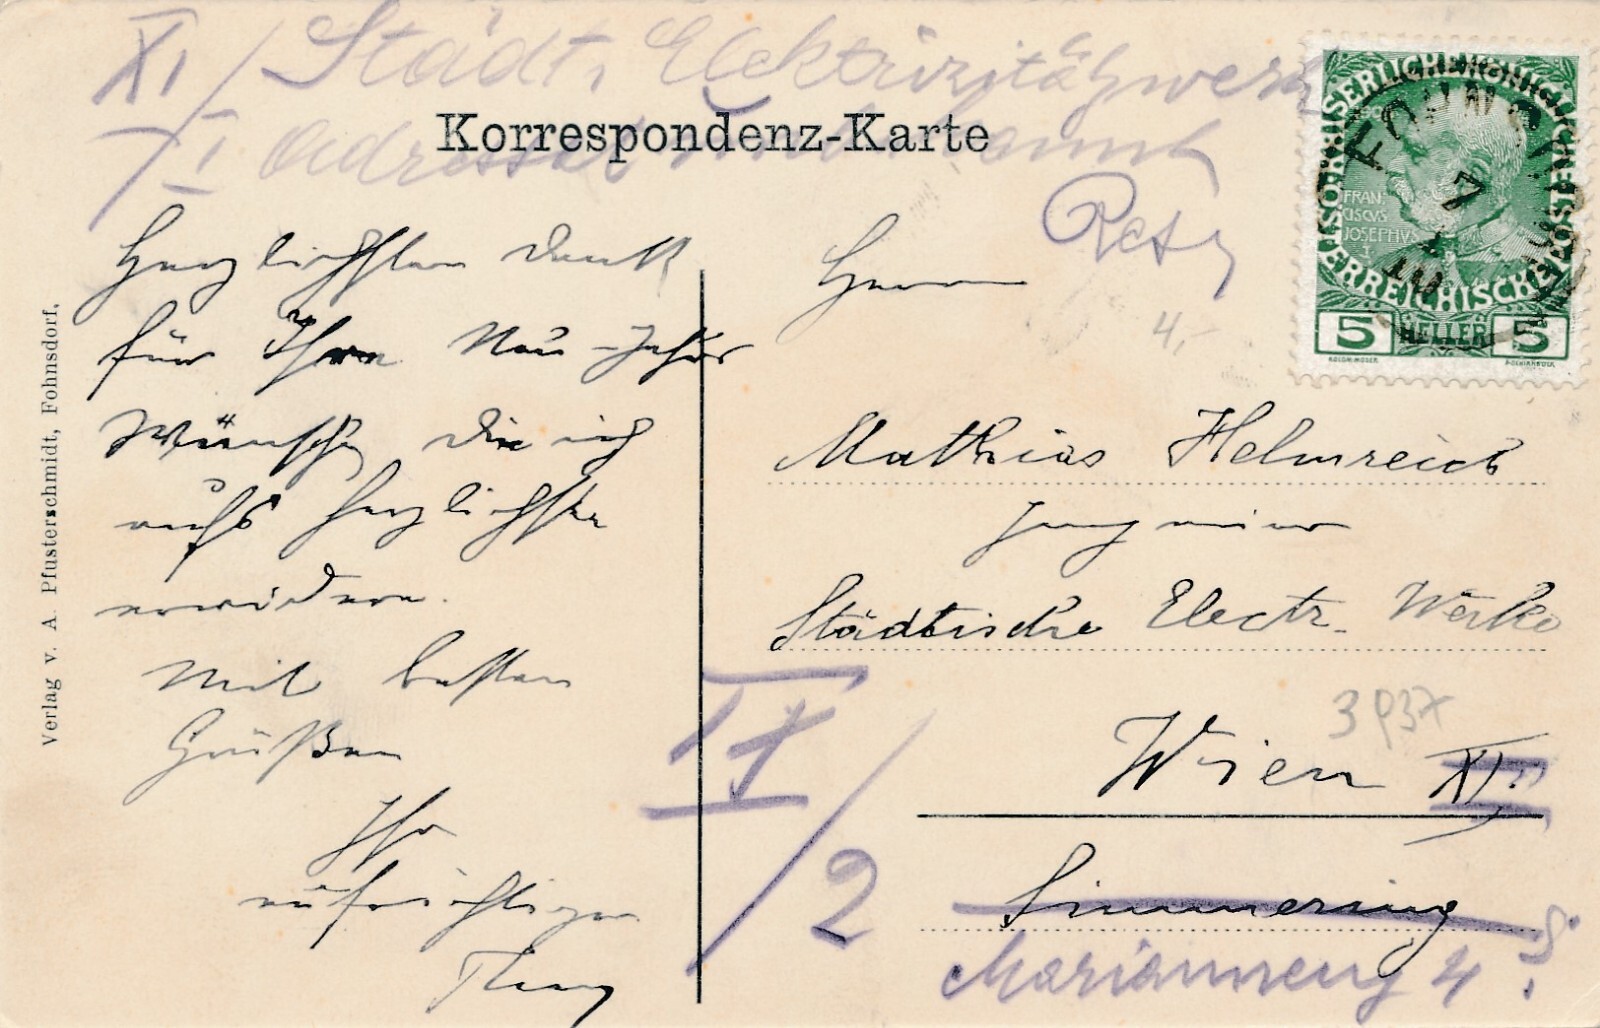 XI/ Städt. Elektrizitätswerk
XI Adressat unbekannt
Korrespondenz-Karte
Retz
KAISERLICHE KÖNIGLICHE ÖSTERREICHISCHE POST
FRAN
CISCVS
JOSEPHVS
I
5 HELLER 5
FOHNSDORF
Herzlichsten Dank
für Ihre Neu-Jahrs
Wünsche die ich
aufs herzlichste
erwidere.
Mit besten
Grüßen
Ihr
aufrichtiger
Verlag v. A. Pfusterschmidt, Fohnsdorf.
Herrn
4,-
Mathias Helmreich
Ingenieur
Städtische Electr. Werke
3937
Wien XI
Simmering
IX/2
Marianneng 4